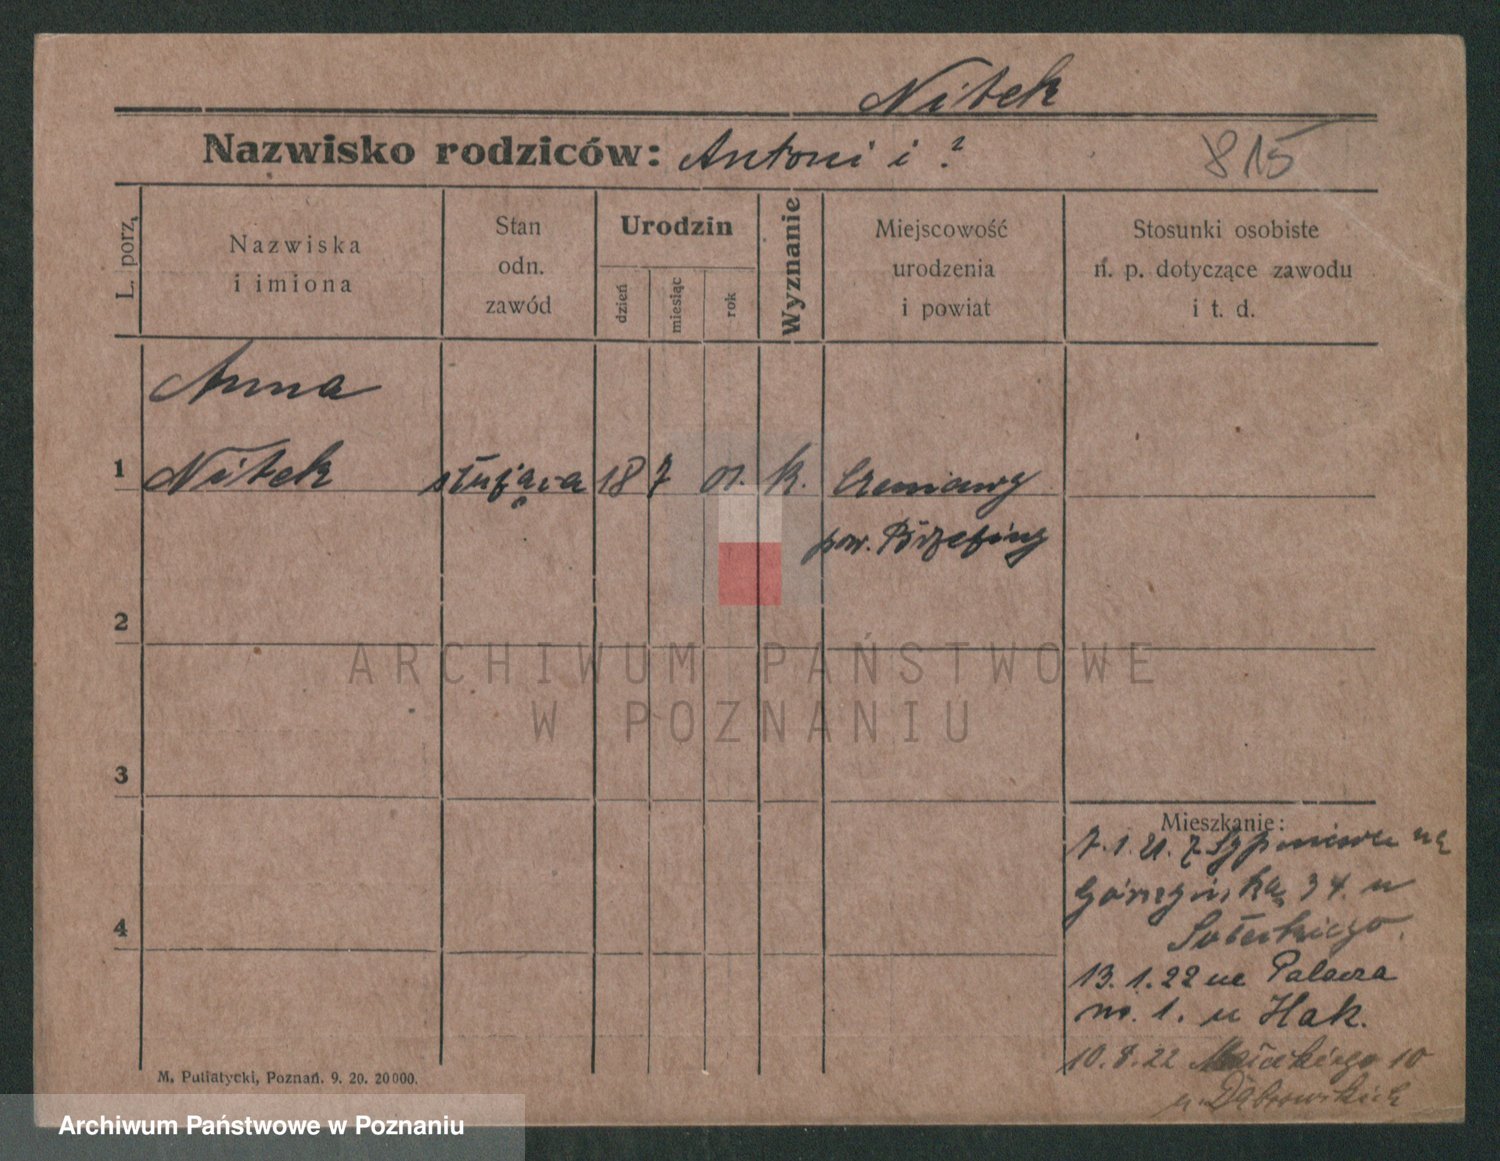 Nitek
Nazwisko rodziców: Antoni i ?
815
L. porz.
Nazwiska
i imiona
Stan
odn.
zawód
Urodzin
dzień
miesiąc
rok
Wyznanie
Miejscowość
urodzenia
i powiat
Stosunki osobiste
n. p. dotyczące zawodu
i t. d.
Anna
1 Nitek służąca 18 7 01. k.
pow.
2
3
4
Mieszkanie:
7.1.21. z na
34. u
Sołeckiego.
13.1.22 na Palacza
no. 1. u Hak.
10.8.22 10
u Dąbrowskich
M. Putiatycki, Poznań. 9. 20. 20000.
ARCHIWUM PAŃSTWOWE
W POZNANIU
Archiwum Państwowe w Poznaniu